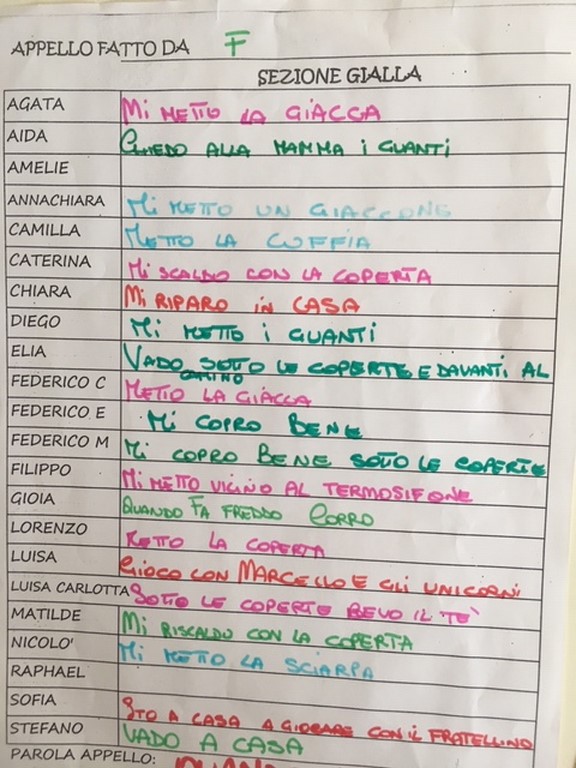 APPELLO FATTO DA F
SEZIONE GIALLA
AGATA Mi METTO LA GIACCA
AIDA CHIEDO ALLA MAMMA i GUANTI
AMELIE
ANNACHIARA Mi METTO UN GIACCONE
CAMILLA METTO LA CUFFIA
CATERINA Mi SCALDO CON LA COPERTA
CHIARA Mi RIPARO in CASA
DIEGO Mi METTO i GUANTI
ELIA VADO SOTTO LE COPERTE E DAVANTI AL
CAMINO
FEDERICO C METTO LA GIACCA
FEDERICO E Mi COPRO BENE
FEDERICO M Mi COPRO BENE SOTTO LE COPERTE
FILIPPO Mi METTO VICINO AL TERMOSIFONE
GIOIA QUANDO FA FREDDO CORRO
LORENZO METTO LA COPERTA
LUISA GIOCO CON MARCELLO E GLI UNICORNI
LUISA CARLOTTA SOTTO LE COPERTE BEVO IL TE'
MATILDE Mi RISCALDO CON LA COPERTA
NICOLO' Mi METTO LA SCIARPA
RAPHAEL
SOFIA STO A CASA A GIOCARE CON iL FRATELLINO
STEFANO VADO A CASA
PAROLA APPELLO: